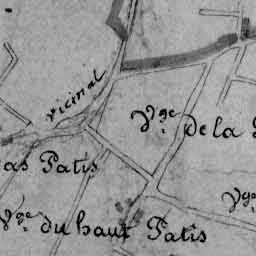 vicinal
Vge de la
as Patis
Vge
Vge du haut Patis